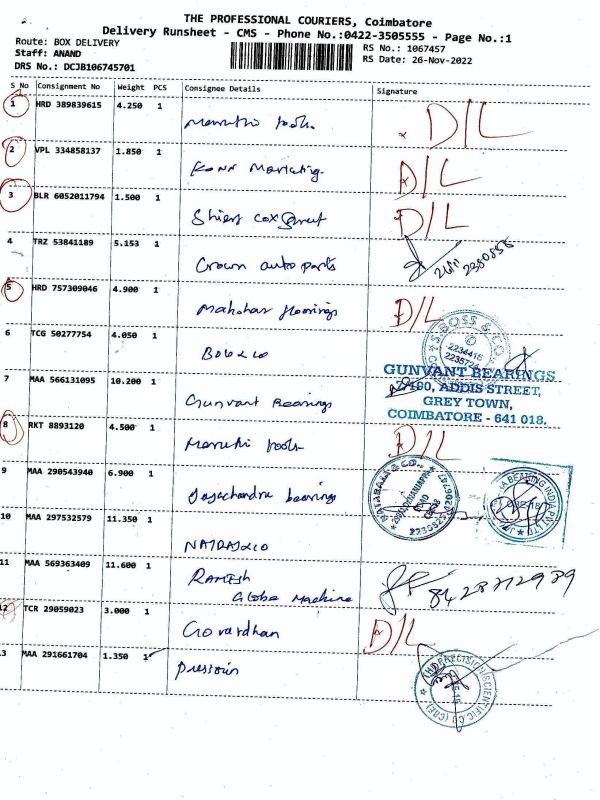 THE PROFESSIONAL COURIERS, Coimbatore
Delivery Runsheet - CMS - Phone No.:0422-3505555 - Page No.:1
Route: BOX DELIVERY
RS No.: 1067457
Staff: ANAND
RS Date: 26-Nov-2022
DRS No.: DCJB106745701
S No Consignment No Weight PCS Consignee Details Signature
1 HRD 389839615 4.250 1
Maruthi tools. D/L
2 VPL 334858137 1.850 1
Marketing. D/L
3 BLR 6052011794 1.500 1
D/L
4 TRZ 53841189 5.153 1
Crown auto parts
5 HRD 757309046 4.900 1
Manohar floorings D/L
6 TCG 50277754 4.050 1
S.BOSS & CO
2234415
GUNVANT BEARINGS
7 MAA 566131095 10.200 1
ADDIS STREET,
GREY TOWN,
Gunvant Bearings
COIMBATORE - 641 018.
8 RKT 8893120 4.500 1
Maruthi tools D/L
9 MAA 290543940 6.900 1
Jayachandra bearings
10 MAA 297532579 11.350 1
NATRAJ & CO
11 MAA 569363409 11.600 1
RAMESH
Globe Machine
12 TCR 29059023 3.000 1
Govardhan D/L
13 MAA 291661704 1.350 1